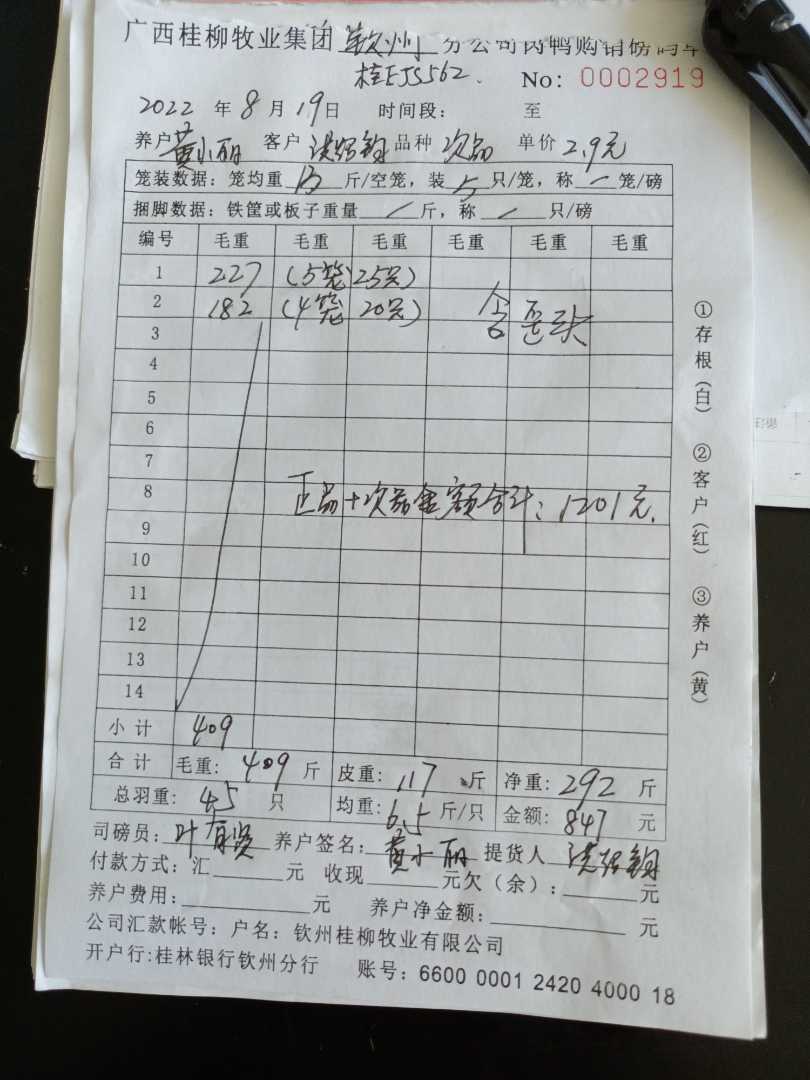 广西桂柳牧业集团 钦州 分公司肉鸭购销磅码单
桂EJS562. No: 0002919
2022 年 8 月 19日 时间段: 至
养户 黄小丽 客户 品种 次品 单价 2.9元
笼装数据: 笼均重 13 斤/空笼, 装 5 只/笼, 称 一 笼/磅
捆脚数据: 铁筐或板子重量 / 斤, 称 / 只/磅
编号 毛重 毛重 毛重 毛重 毛重 毛重
1 227 (5笼 25只)
2 182 (4笼 20只) 含歪头
3
4
5
6
7
8 正品+次品金额合计: 1201元.
9
10
11
12
13
14
小计 409
合计 毛重: 409 斤 皮重: 117 斤 净重: 292 斤
总羽重: 45 只 均重: 6.5 斤/只 金额: 847 元
司磅员: 叶 养户签名: 黄小丽 提货人
付款方式: 汇 元 收现 元欠(余): 元
养户费用: 元 养户净金额: 元
公司汇款帐号: 户名: 钦州桂柳牧业有限公司
开户行:桂林银行钦州分行 账号: 6600 0001 2420 4000 18
①存根(白) ②客户(红) ③养户(黄)